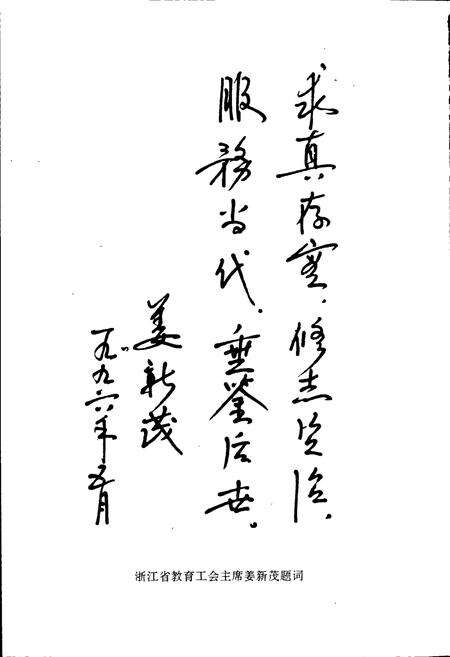 求真存实，修志资治，
服務当代，垂鉴后世。
姜新茂
一九九六年五月
浙江省教育工会主席姜新茂题词